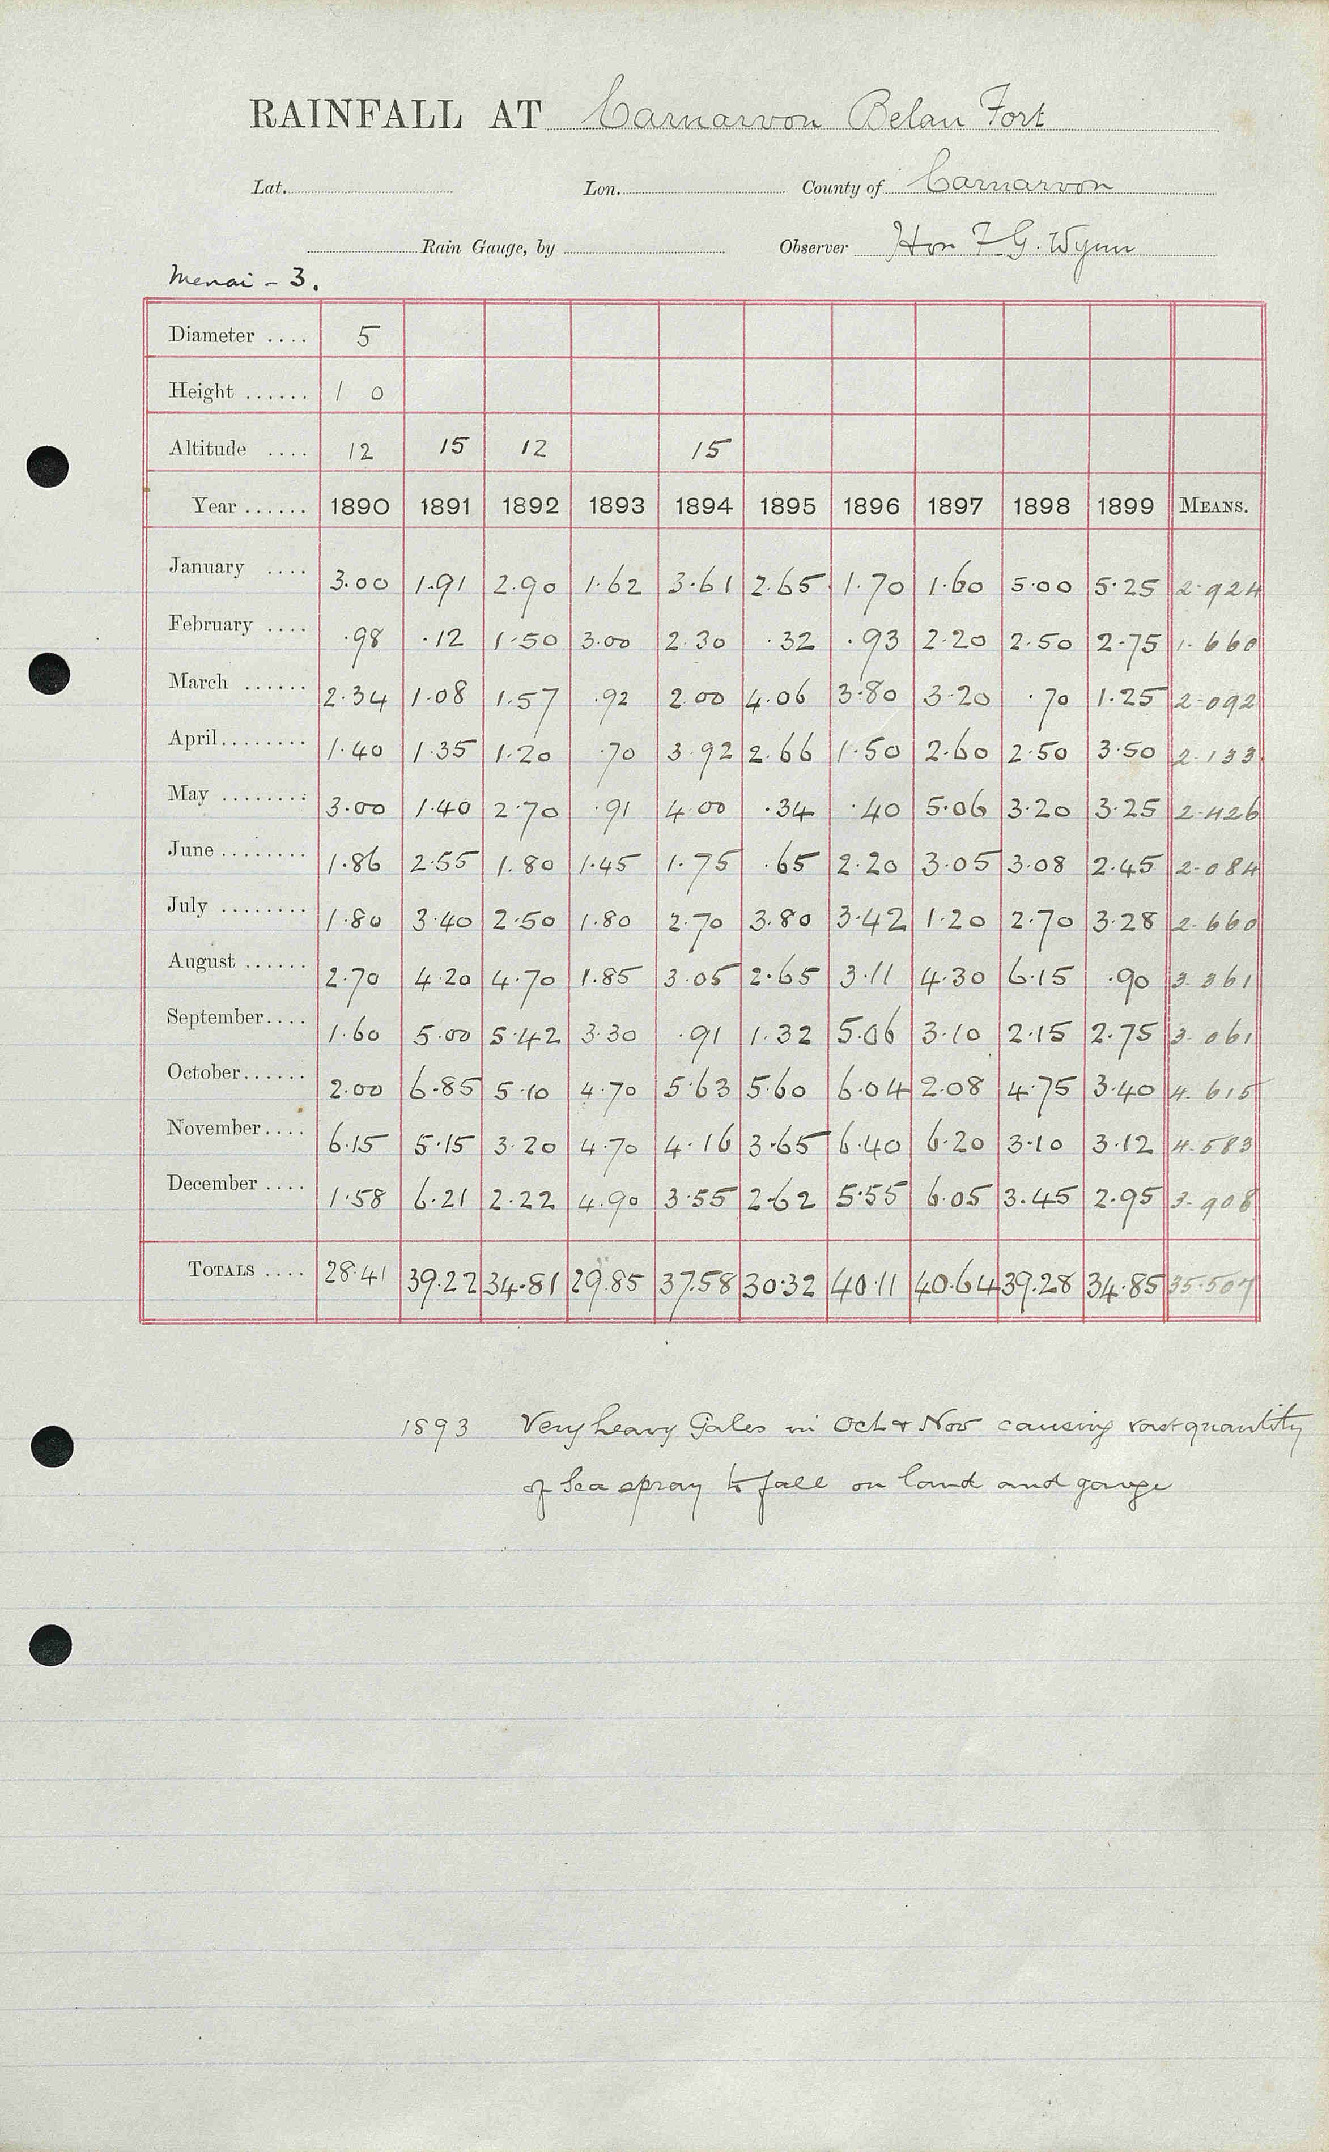 RAINFALL AT Carnarvon Belan Fort
Lat. Lon. County of Carnarvon
Rain Gauge, by Observer Hon F G. Wynn
Menai - 3.
Diameter .... 5
Height ...... 1 0
Altitude .... 12 15 12 15
Year ...... 1890 1891 1892 1893 1894 1895 1896 1897 1898 1899 MEANS.
January .... 3.00 1.91 2.90 1.62 3.61 2.65 1.70 1.60 5.00 5.25 2.924
February .... .98 .12 1.50 3.00 2.30 .32 .93 2.20 2.50 2.75 1.660
March ...... 2.34 1.08 1.57 .92 2.00 4.06 3.80 3.20 .70 1.25 2.092
April........ 1.40 1.35 1.20 .70 3.92 2.66 1.50 2.60 2.50 3.50 2.133
May ........ 3.00 1.40 2.70 .91 4.00 .34 .40 5.06 3.20 3.25 2.426
June ........ 1.86 2.55 1.80 1.45 1.75 .65 2.20 3.05 3.08 2.45 2.084
July ........ 1.80 3.40 2.50 1.80 2.70 3.80 3.42 1.20 2.70 3.28 2.660
August ...... 2.70 4.20 4.70 1.85 3.05 2.65 3.11 4.30 6.15 .90 3.361
September.... 1.60 5.00 5.42 3.30 .91 1.32 5.06 3.10 2.15 2.75 3.061
October...... 2.00 6.85 5.10 4.70 5.63 5.60 6.04 2.08 4.75 3.40 4.615
November.... 6.15 5.15 3.20 4.70 4.16 3.65 6.40 6.20 3.10 3.12 4.583
December .... 1.58 6.21 2.22 4.90 3.55 2.62 5.55 6.05 3.45 2.95 3.908
TOTALS .... 28.41 39.22 34.81 29.85 37.58 30.32 40.11 40.64 39.28 34.85 35.507
1893 Very heavy Gales in Oct & Nov causing vast quantity
of Sea spray to fall on land and gauge